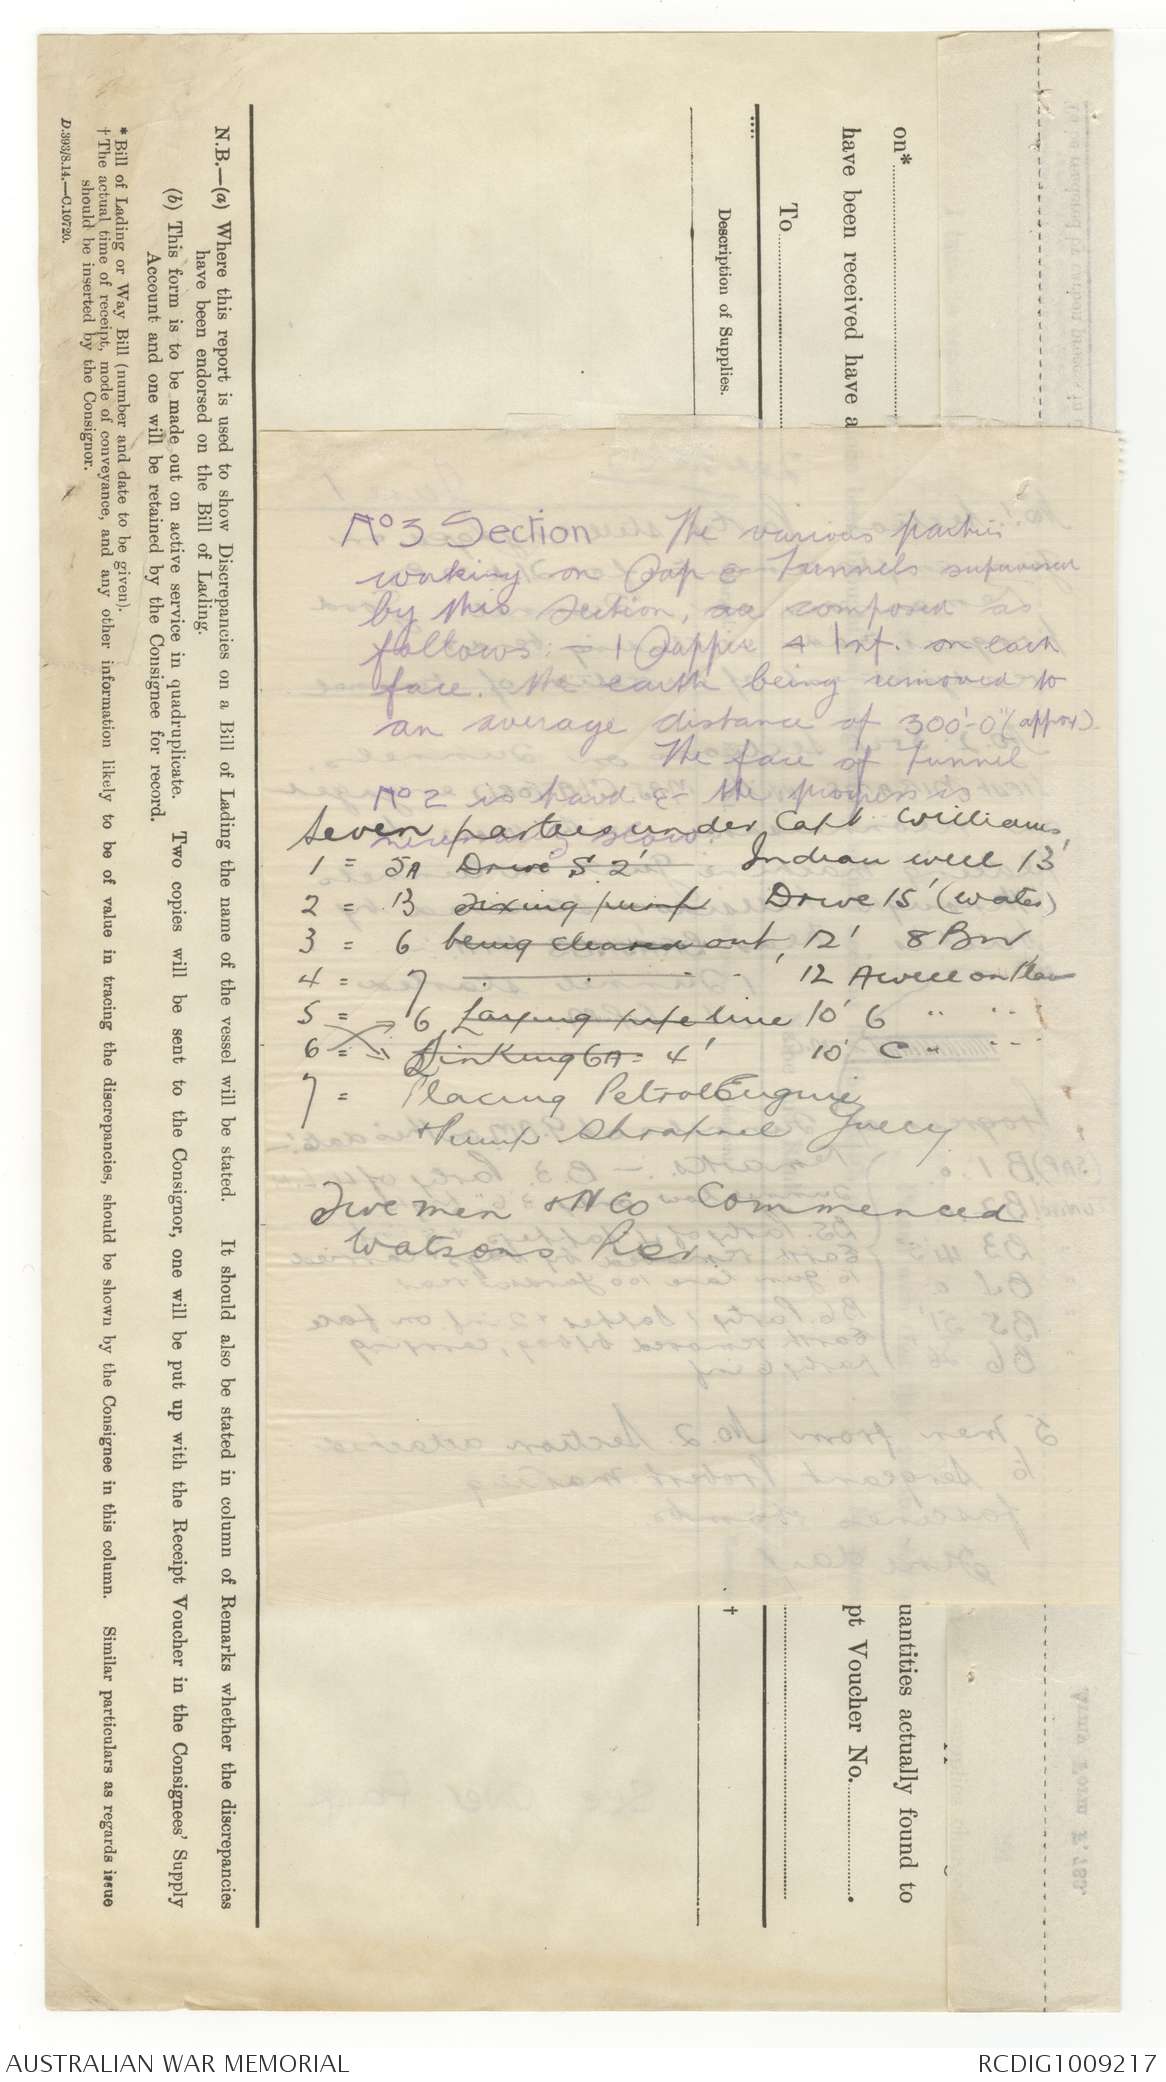 No 3 Section The various parties
working on Sap & Tunnels supervised
by this Section, are composed as
follows: - 1 Sapper 4 Inf. on each
face. The earth being removed to
an average distance of 300'-0" (approx).
The face of Tunnel
No 2 is hard & the progress is
necessarily slow.
Seven parties under Capt Williams,
1 = 5A Drive S. 2' Indian well 13'
2 = 13 Fixing pump Drive 15' (water)
3 = 6 being cleared out, 12' 8 Bn
4 = 7 " " " 12 A well on
5 = 6 Laying pipe line 10' 6 " "
6 = Sinking 6A = 4' 10' C " "
7 = Placing Petrol Engine
& Pump Shrapnel Gully
Five men & NCO Commenced
Watsons Pier
on*
have been received have a
To
Description of Supplies.
†
uantities actually found to
pt Voucher No.
N.B.—(a) Where this report is used to show Discrepancies on a Bill of Lading the name of the vessel will be stated. It should also be stated in column of Remarks whether the discrepancies
have been endorsed on the Bill of Lading.
(b) This form is to be made out on active service in quadruplicate. Two copies will be sent to the Consignor, one will be put up with the Receipt Voucher in the Consignees' Supply
Account and one will be retained by the Consignee for record.
* Bill of Lading or Way Bill (number and date to be given).
† The actual time of receipt, mode of conveyance, and any other information likely to be of value in tracing the discrepancies, should be shown by the Consignee in this column. Similar particulars as regards issue
should be inserted by the Consignor.
D.393/8.14.—C.10720.
AUSTRALIAN WAR MEMORIAL
RCDIG1009217